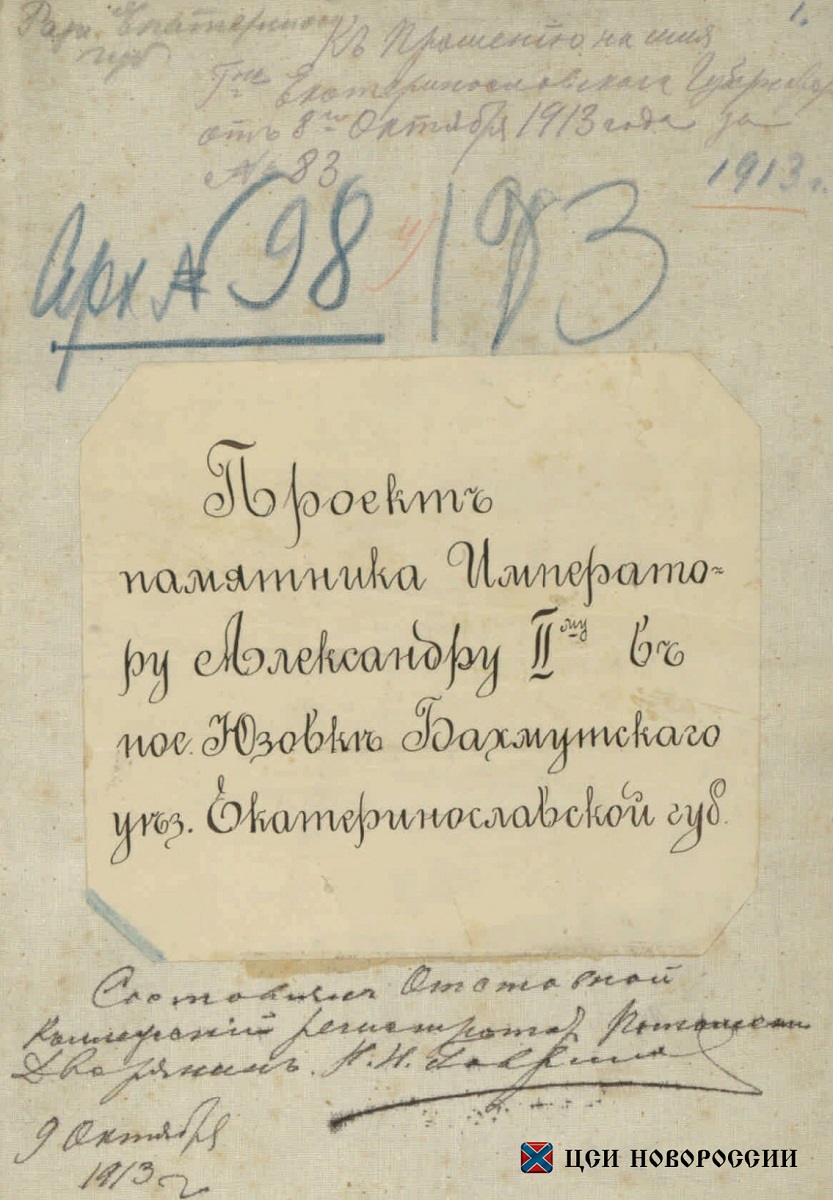 1.
Екатеринослав
губ
Къ Прошенію на имя
Г-на Екатеринославскаго Губернатора
отъ 8го Октября 1913 года за
№ 83
1913 г.
Арх № 98
193
Проектъ
памятника Императо-
ру Александру II му въ
пос. Юзовкѣ Бахмутскаго
уѣз. Екатеринославской губ.
Составилъ Отставной
Коллежскій регистраторъ Потомств.
Дворянинъ. Н. Н.
9 Октября
1913 г
ЦСИ НОВОРОССИИ